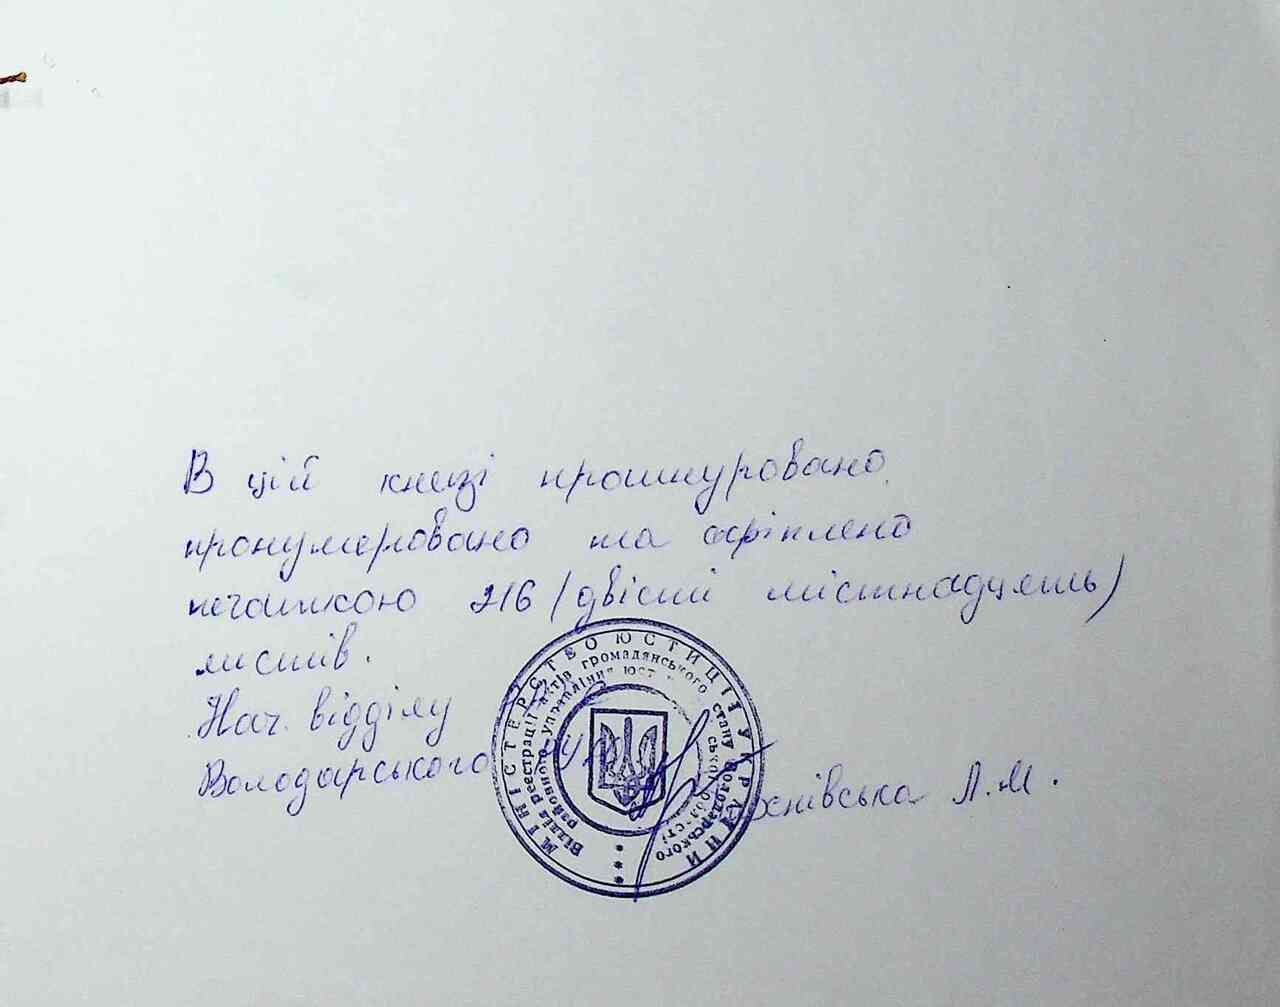 В цій книзі прошнуровано,
пронумеровано та скріплено
печаткою 216 (двісті шістнадцять)
листів.
Нач. відділу
Володарського РУЮ Л.М.
МІНІСТЕРСТВО ЮСТИЦІЇ УКРАЇНИ
Відділ реєстрації актів громадянського стану Володарського
районного управління юст ської області